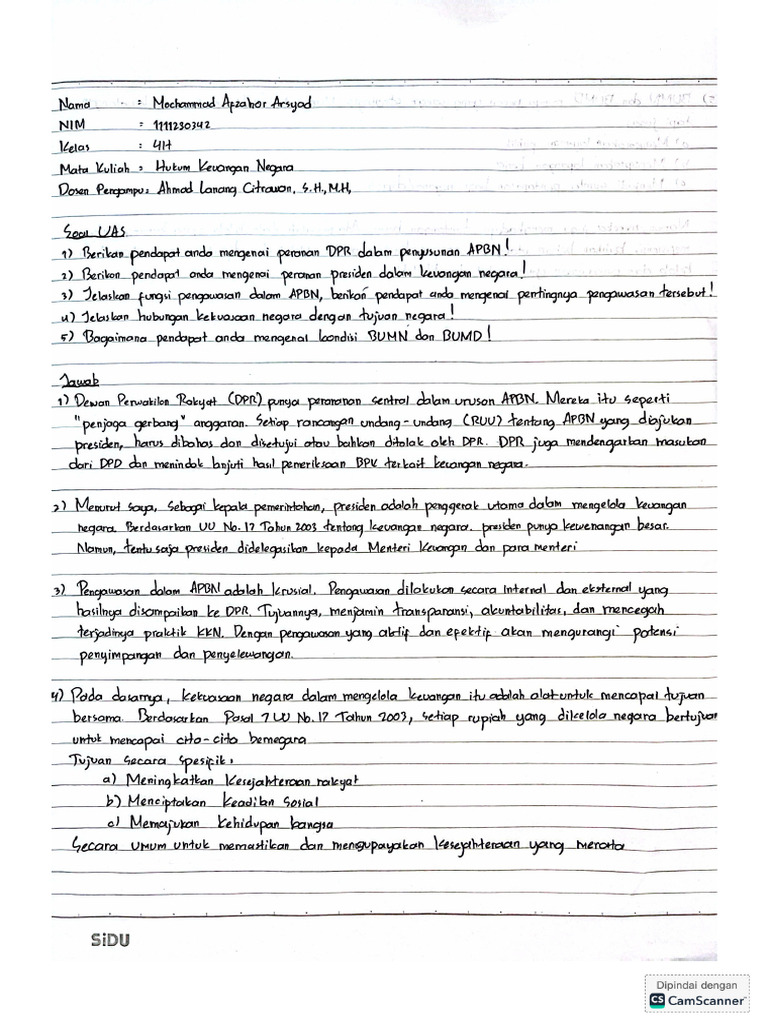 Nama : Mochammad Afzahor Arsyad
NIM : 1111230342
Kelas : 4H
Mata Kuliah : Hukum Keuangan Negara
Dosen Pengampu: Ahmad Lanang Citrawan, S.H., M.H,
Soal UAS
1) Berikan pendapat anda mengenai peranan DPR dalam penyusunan APBN!
2) Berikan pendapat anda mengenai peranan presiden dalam keuangan negara!
3) Jelaskan fungsi pengawasan dalam APBN, berikan pendapat anda mengenai pentingnya pengawasan tersebut!
4) Jelaskan hubungan kekuasaan negara dengan tujuan negara!
5) Bagaimana pendapat anda mengenai kondisi BUMN dan BUMD!
Jawab
1) Dewan Perwakilan Rakyat (DPR) punya peraranan sentral dalam urusan APBN. Mereka itu seperti
"penjaga gerbang" anggaran. Setiap rancangan undang-undang (RUU) tentang APBN yang diajukan
presiden, harus dibahas dan disetujui atau bahkan ditolak oleh DPR. DPR juga mendengarkan masukan
dari DPD dan menindak lanjuti hasil pemeriksaan BPK terkait keuangan negara.
2) Menurut saya, sebagai kepala pemerintahan, presiden adalah penggerak utama dalam mengelola keuangan
negara. Berdasarkan UU No.17 Tahun 2003 tentang keuangan negara. presiden punya kewenangan besar.
Namun, tentu saja presiden didelegasikan kepada Menteri Keuangan dan para menteri
3) Pengawasan dalam APBN adalah krusial. Pengawasan dilakukan secara internal dan eksternal yang
hasilnya disampaikan ke DPR. Tujuannya, menjamin transparansi, akuntabilitas, dan mencegah
terjadinya praktik KKN. Dengan pengawasan yang aktif dan efektif akan mengurangi potensi
penyimpangan dan penyelewangan.
4) Pada dasarnya, kekuasaan negara dalam mengelola keuangan itu adalah alat untuk mencapai tujuan
bersama. Berdasarkan Pasal 7 UU No.17 Tahun 2003, setiap rupiah yang dikelola negara bertujuan
untuk mencapai cita-cita bernegara
Tujuan secara spesifik:
a) Meningkatkan Kesejahteraan rakyat
b) Menciptakan Keadilan Sosial
c) Memajukan Kehidupan bangsa
Secara umum untuk memastikan dan mengupayakan Kesejahteraan yang merata
SiDU
Dipindai dengan
CS CamScanner